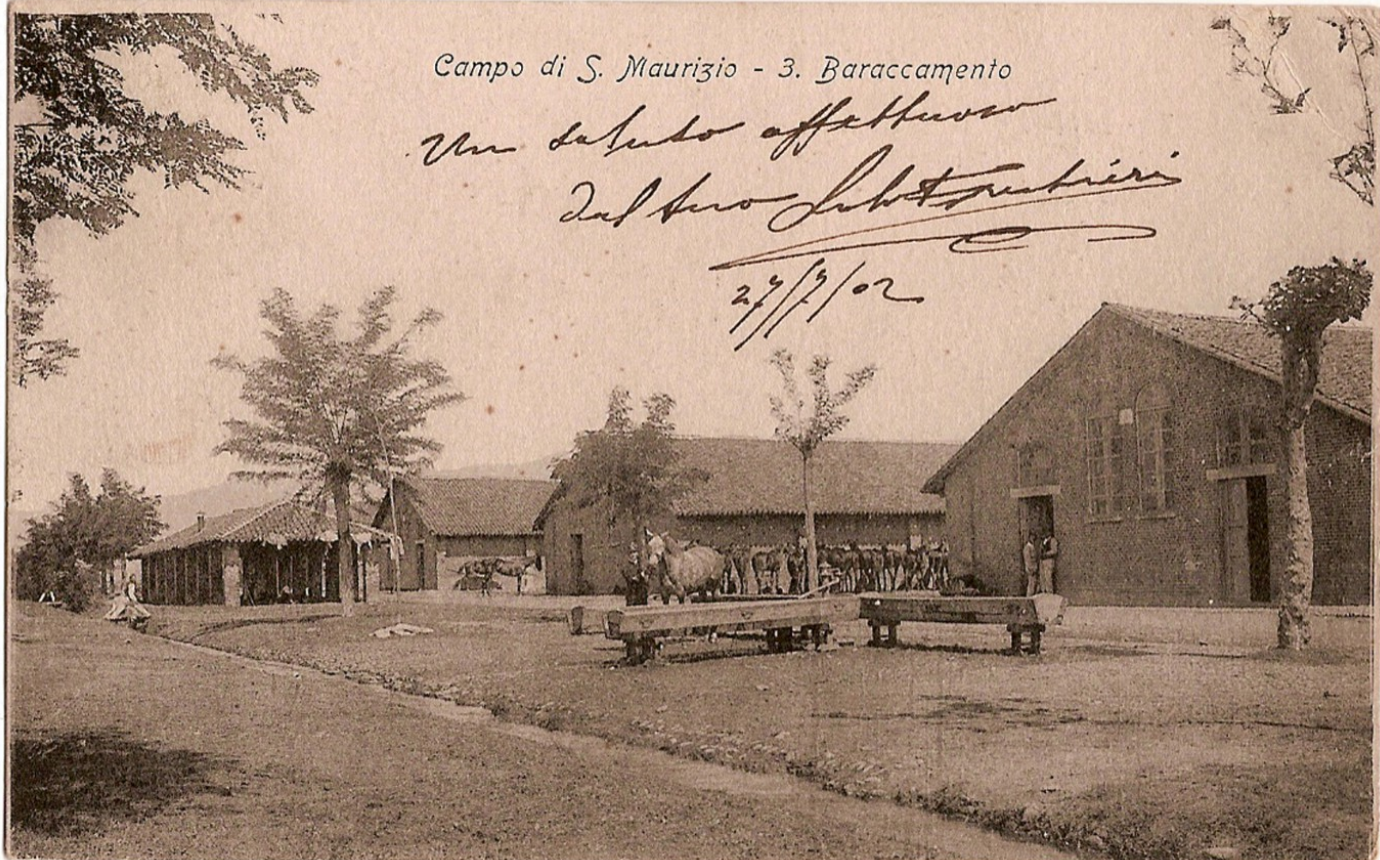 Campo di S. Maurizio - 3. Baraccamento
Un saluto affettuoso
dal tuo
27/7/02